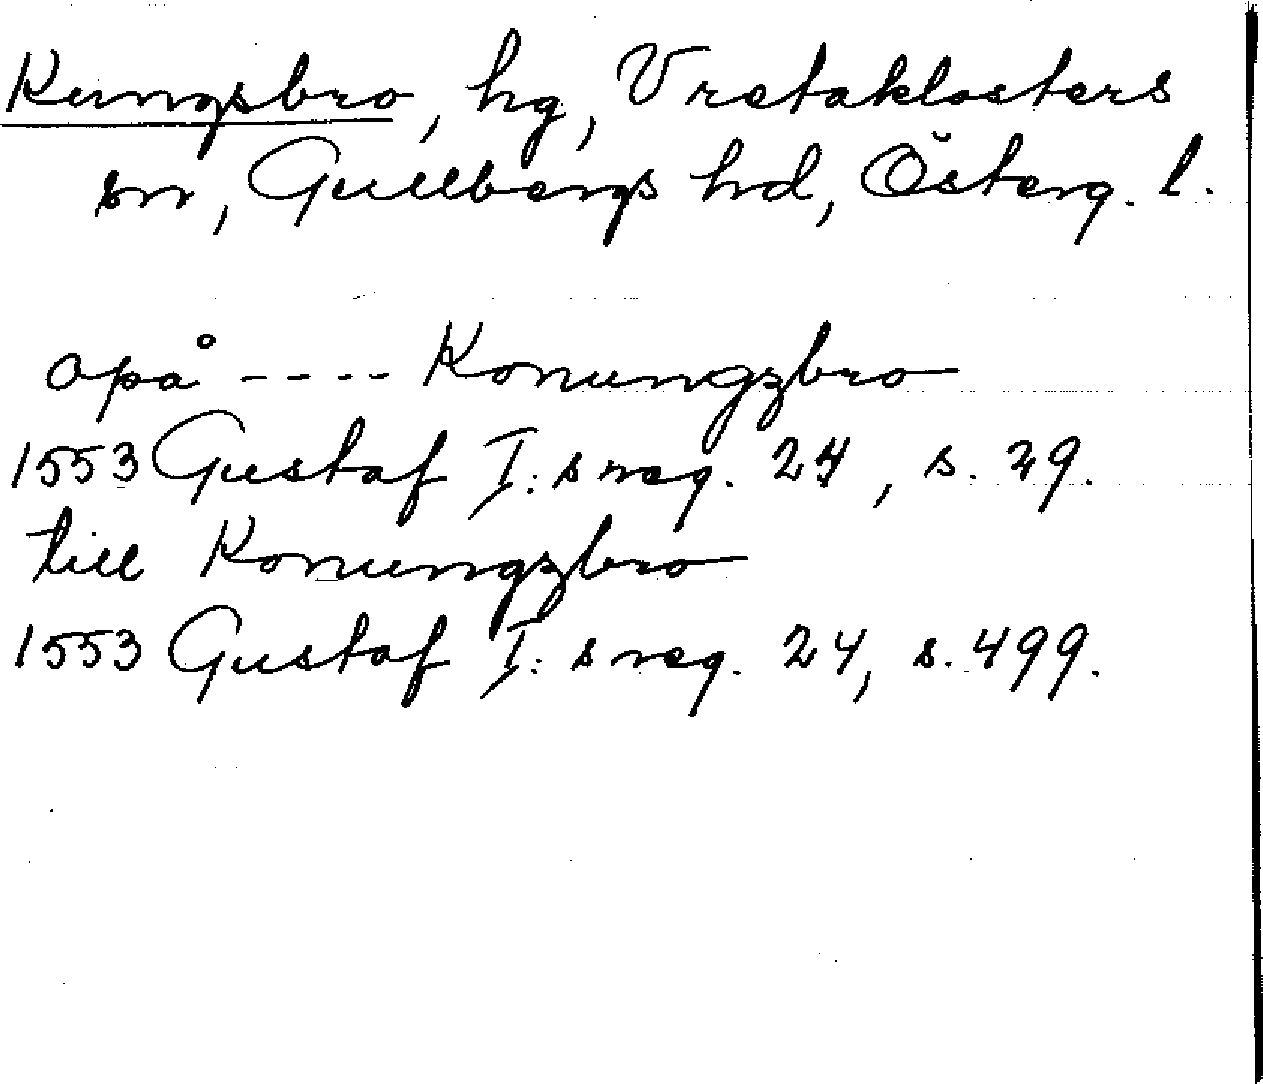 Kungsbro, hg, Vretaklosters
sn, Gullbergs hd, Österg. l.
opå ---- Konungzbro
1553 Gustaf I:s reg. 24, s. 29.
till Konungzbro
1553 Gustaf I:s reg. 24, s. 499.